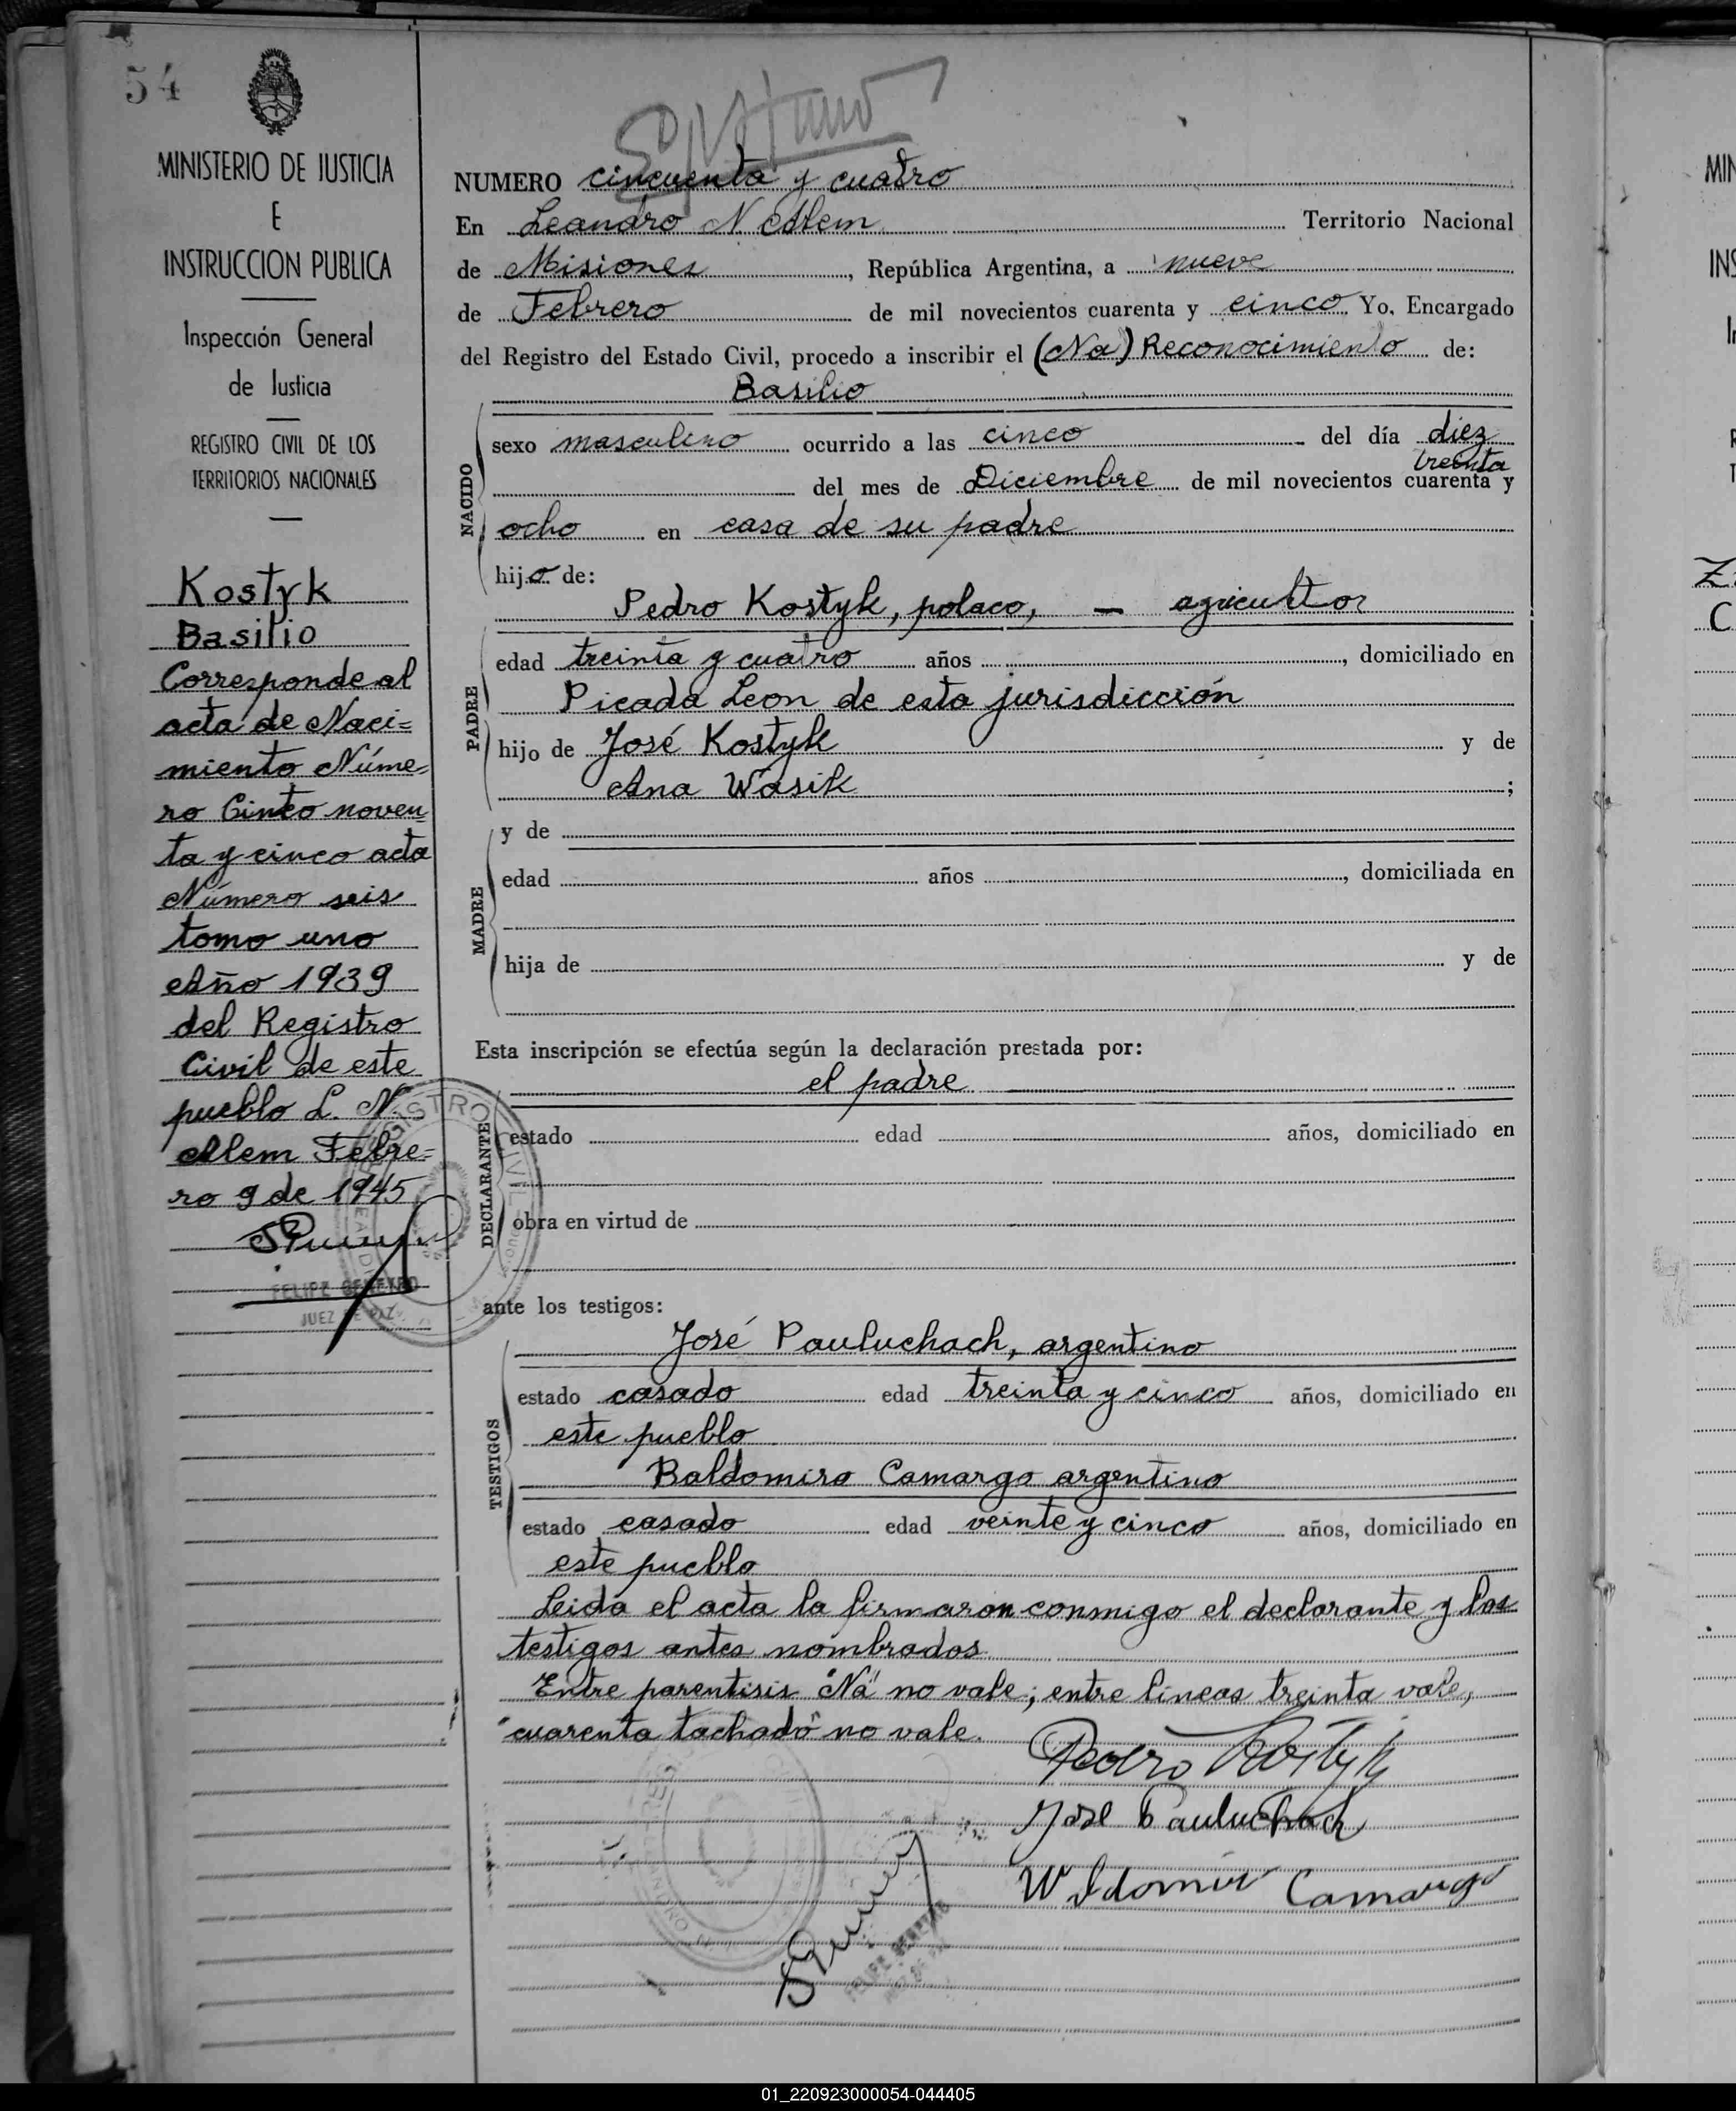 54
MINISTERIO DE JUSTICIA
E
INSTRUCCION PUBLICA
Inspección General
de Justicia
REGISTRO CIVIL DE LOS
TERRITORIOS NACIONALES
Kostyk
Basilio
Corresponde al
acta de Naci=
miento Núme=
ro Cinto noven
ta y cinco acta
Número seis
tomo uno
Año 1939
del Registro
Civil de este
pueblo L. N.
Alem Febre=
ro 9 de 1945
JUEZ DE PAZ
NUMERO cincuenta y cuatro
En Leandro N Alem Territorio Nacional
de Misiones, República Argentina, a nueve
de Febrero de mil novecientos cuarenta y cinco Yo, Encargado
del Registro del Estado Civil, procedo a inscribir el (Na) Reconocimiento de:
Basilio
NACIDO
sexo masculino ocurrido a las cinco del día diez
treinta
del mes de Diciembre de mil novecientos cuarenta y
ocho en casa de su padre
hijo de:
PADRE
Pedro Kostyk, polaco, — agricultor
edad treinta y cuatro años, domiciliado en
Picada Leon de esta jurisdicción
hijo de José Kostyk y de
Ana Wasik;
MADRE
y de
edad años, domiciliada en
hija de y de
Esta inscripción se efectúa según la declaración prestada por:
DECLARANTE
el padre
estado edad años, domiciliado en
obra en virtud de
ante los testigos:
TESTIGOS
José Pauluchach, argentino
estado casado edad treinta y cinco años, domiciliado en
este pueblo
Baldomiro Camargo argentino
estado casado edad veinte y cinco años, domiciliado en
este pueblo
Leida el acta la firmaron conmigo el declarante y los
testigos antes nombrados.
Entre parentisis "Na" no vale; entre lineas treinta vale,
"cuarenta tachado" no vale.
Pedro Kostyk
José Pauluchach
Camargo
01_220923000054-044405